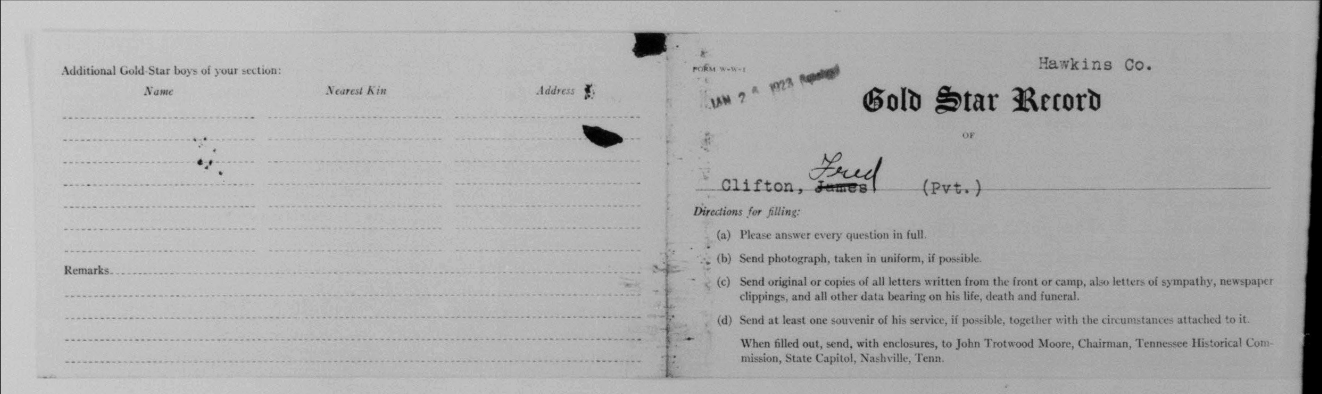 Additional Gold Star boys of your section:
Name Nearest Kin Address
Remarks
FORM W-W-1
JAN 2 1923
Hawkins Co.
Gold Star Record
OF
Fred
Clifton, James (Pvt.)
Directions for filling:
(a) Please answer every question in full.
(b) Send photograph, taken in uniform, if possible.
(c) Send original or copies of all letters written from the front or camp, also letters of sympathy, newspaper
clippings, and all other data bearing on his life, death and funeral.
(d) Send at least one souvenir of his service, if possible, together with the circumstances attached to it.
When filled out, send, with enclosures, to John Trotwood Moore, Chairman, Tennessee Historical Com-
mission, State Capitol, Nashville, Tenn.